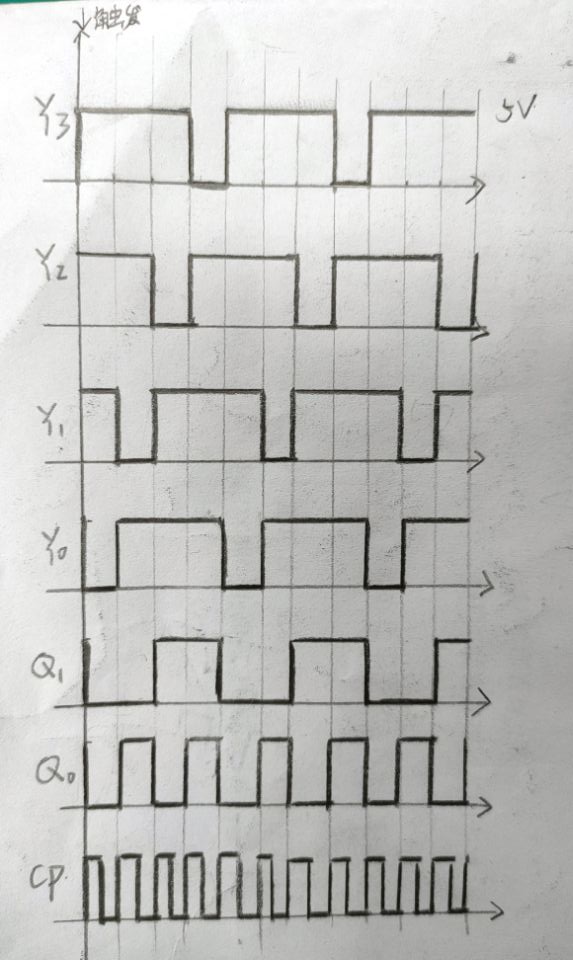 触发
Y3 5V
Y2
Y1
Y0
Q1
Q0
CP